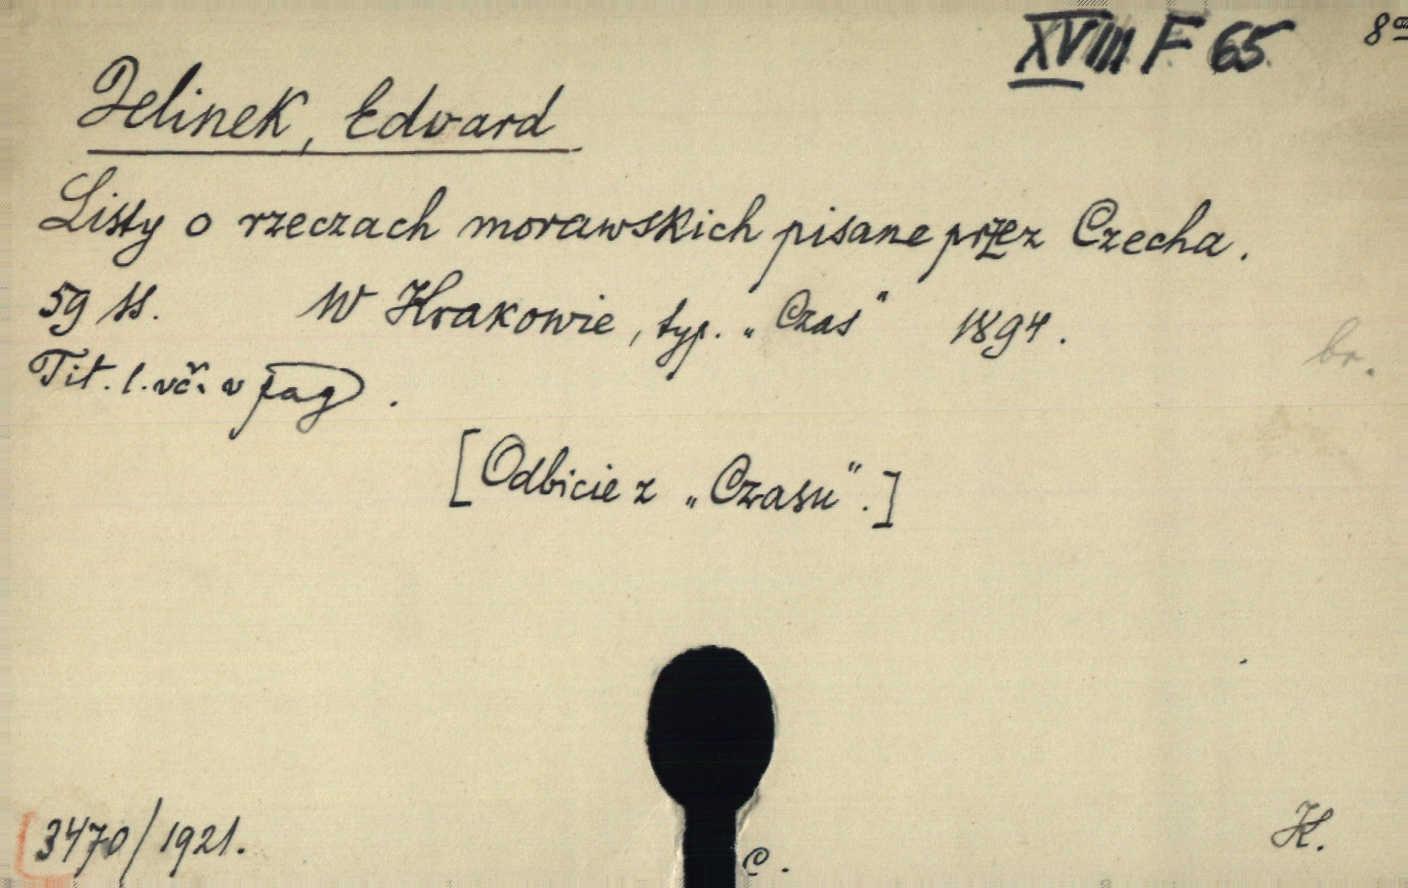 XVIII F 65 8°
Jelinek, Edward
Listy o rzeczach morawskich pisane przez Czecha.
59 ss. W Krakowie, typ. „Czas" 1894.
br.
Tit. l. vč. v pag.
[Odbicie z „Czasu".]
3470/1921.
C.
K.